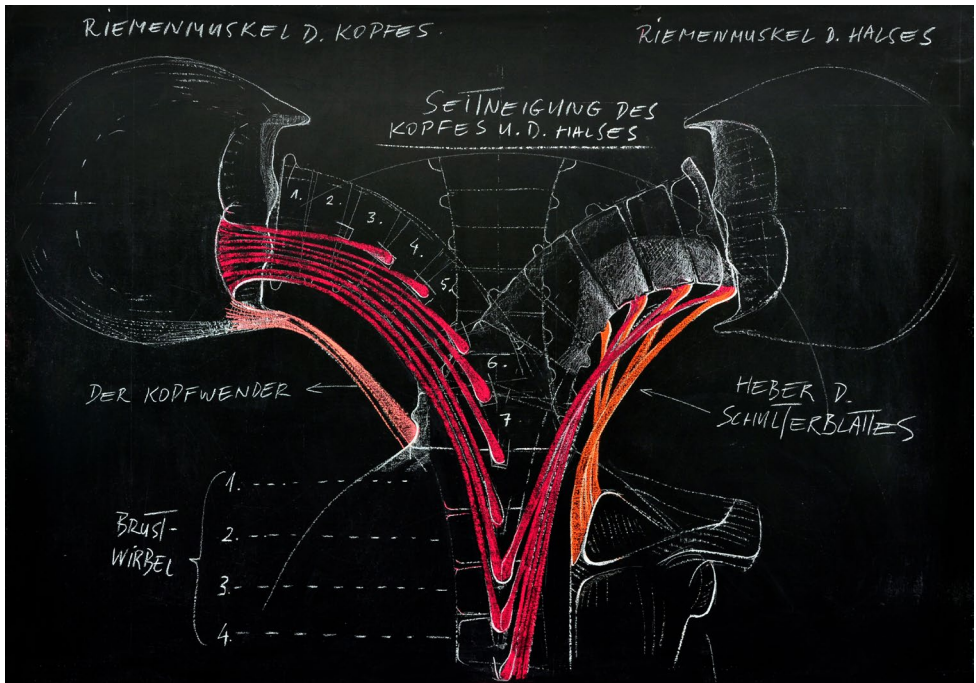 RIEMENMUSKEL D. KOPFES.
RIEMENMUSKEL D. HALSES
SEITNEIGUNG DES
KOPFES U. D. HALSES
1.
2.
3.
4.
5.
6.
7
DER KOPFWENDER
HEBER D.
SCHULTERBLATTES
BRUST-
WIRBEL
1.
2.
3.
4.